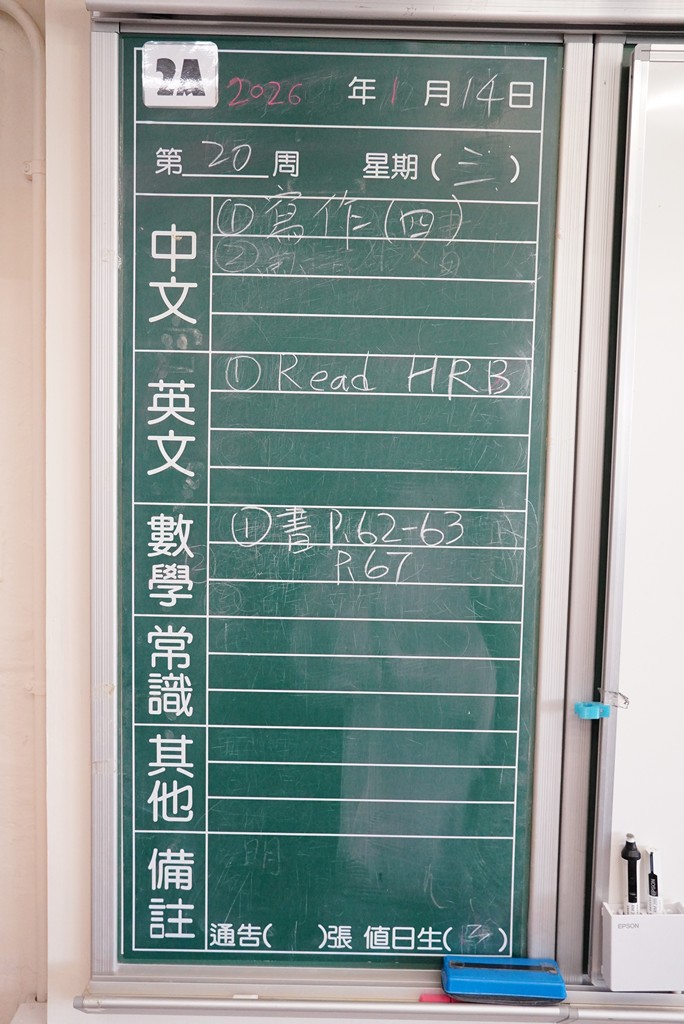 2A 2026 年 1 月 14 日
第 20 周 星期(三)
中文
①寫作(四)
②
英文
① Read HRB
數學
①書 P.62-63
P.67
常識
其他
備註
通告( )張 值日生( )
EPSON